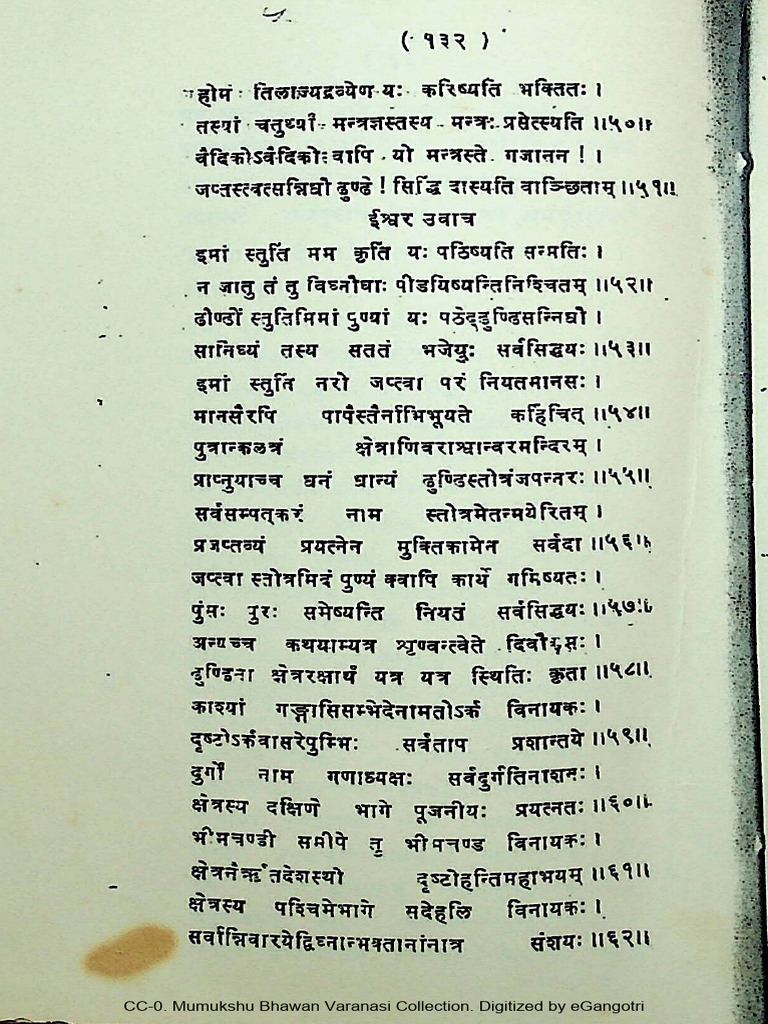 ( १३२ )
होमं तिलाज्यद्रव्येण यः करिष्यति भक्तितः ।
तस्यां चतुर्थ्यां मन्त्रज्ञस्तस्य मन्त्रः प्रसेत्स्यति ॥५०॥
वैदिकोऽवैदिकोः वापि यो मन्त्रस्ते गजानन ! ।
जप्तस्त्वत्सन्निधौ ढुण्ढे ! सिद्धि दास्यति वाञ्छिताम् ॥५१॥
ईश्वर उवाच
इमां स्तुतिं मम कृतिं यः पठिष्यति सन्मतिः ।
न जातु तं तु विघ्नौघाः पीडयिष्यन्तिनिश्चितम् ॥५२॥
ढौण्ढीं स्तुतिमिमां पुण्यां यः पठेद्ढुण्ढिसन्निधौ ।
सानिध्यं तस्य सततं भजेयुः सर्वसिद्धयः ॥५३॥
इमां स्तुतिं नरो जप्त्वा परं नियतमानसः ।
मानसैरपि पापैस्तैर्नाभिभूयते कर्हिचित् ॥५४॥
पुत्रान्कलत्रं क्षेत्राणिवराश्वान्वरमन्दिरम् ।
प्राप्नुयाच्च धनं धान्यं ढुण्ढिस्तोत्रंजपन्नरः ॥५५॥
सर्वसम्पत्करं नाम स्तोत्रमेतन्मयेरितम् ।
प्रजप्तव्यं प्रयत्नेन मुक्तिकामेन सर्वदा ॥५६॥
जप्त्वा स्तोत्रमिदं पुण्यं क्वापि कार्ये गमिष्यतः ।
पुंसः पुरः समेष्यन्ति नियतं सर्वसिद्धयः ॥५७॥
अन्यच्च कथयाम्यत्र शृण्वन्त्वेते दिवौकसः ।
ढुण्ढिना क्षेत्ररक्षार्थं यत्र यत्र स्थितिः कृता ॥५८॥
काश्यां गङ्गासिसम्भेदेनामतोऽर्क विनायकः ।
दृष्टोऽर्कवासरेपुम्भिः सर्वताप प्रशान्तये ॥५९॥
दुर्गो नाम गणाध्यक्षः सर्वदुर्गतिनाशनः ।
क्षेत्रस्य दक्षिणे भागे पूजनीयः प्रयत्नतः ॥६०॥
भीमचण्डी समीपे तु भीमचण्ड विनायकः ।
क्षेत्रनैर्ऋतदेशस्थो दृष्टोहन्तिमहाभयम् ॥६१॥
क्षेत्रस्य पश्चिमेभागे सदेहलि विनायकः ।
सर्वान्निवारयेद्विघ्नान्भक्तानांनात्र संशयः ॥६२॥
CC-0. Mumukshu Bhawan Varanasi Collection. Digitized by eGangotri